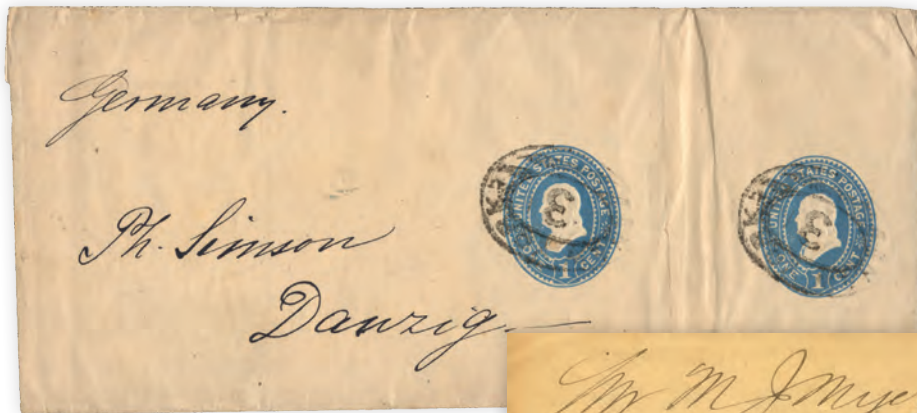 Germany.
Ph. Simson
Danzig
UNITED STATES POSTAGE
ONE 1 CENT
3
UNITED STATES POSTAGE
ONE 1 CENT
3
Mr M J